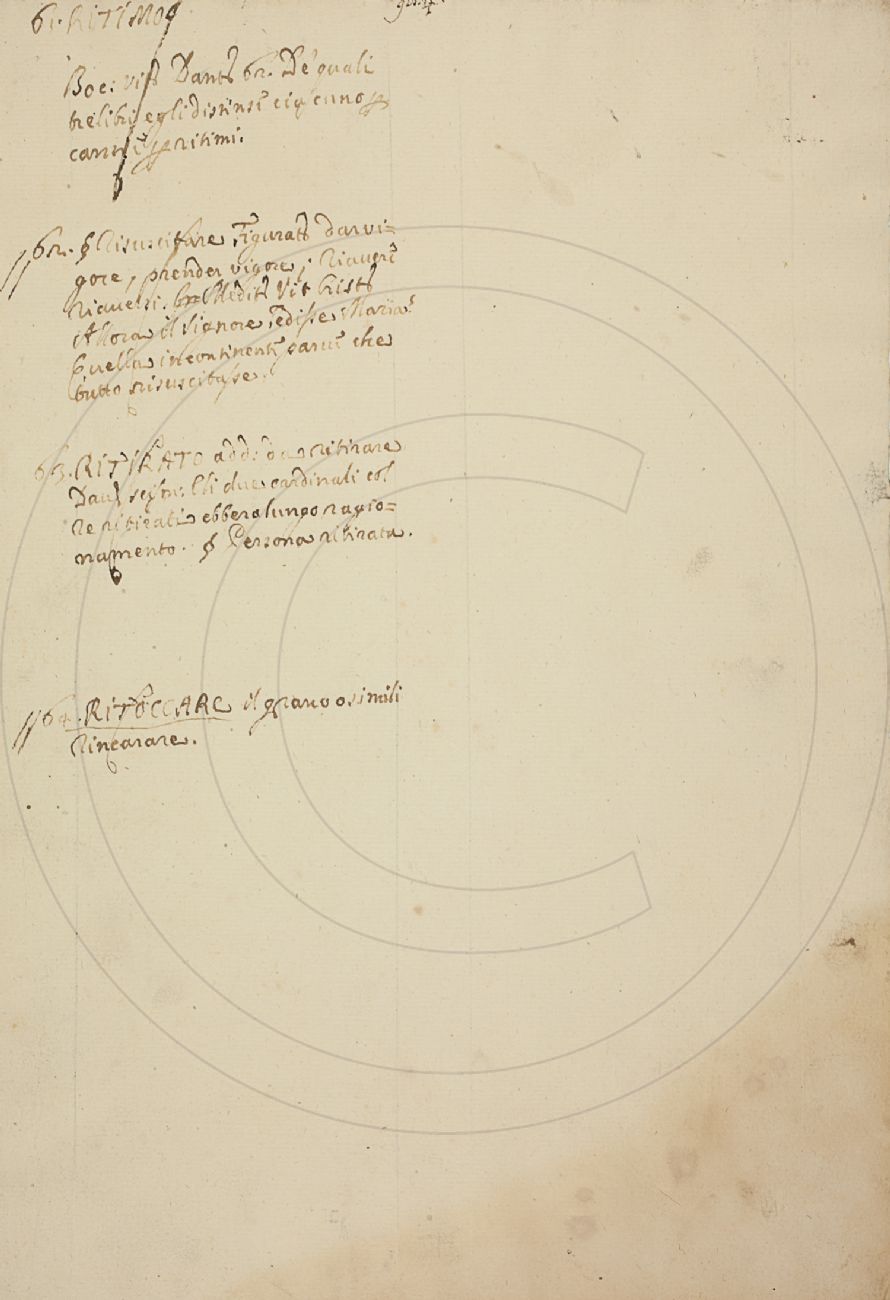 61. RITIMO
Boc: vit Dant 62. De quali
tre libri egli distinse ciascuno
canti ritimi.
62. § Risuscitare Figurat. Dar vi=
gore, prender vigore; Riavere
Riaversi. Medit. Vit. Crist.
Allora il Signore disse Maria:
Quella incontinente parve che
tutto risuscitasse.
63. RITIRATO add: da ritirare
Dav. Scism: Li due cardinali col
Re ritirati ebbero lungo ragio=
namento. § Persona ritirata.
64. RITOCCARE il grano o simili
Rincarare.